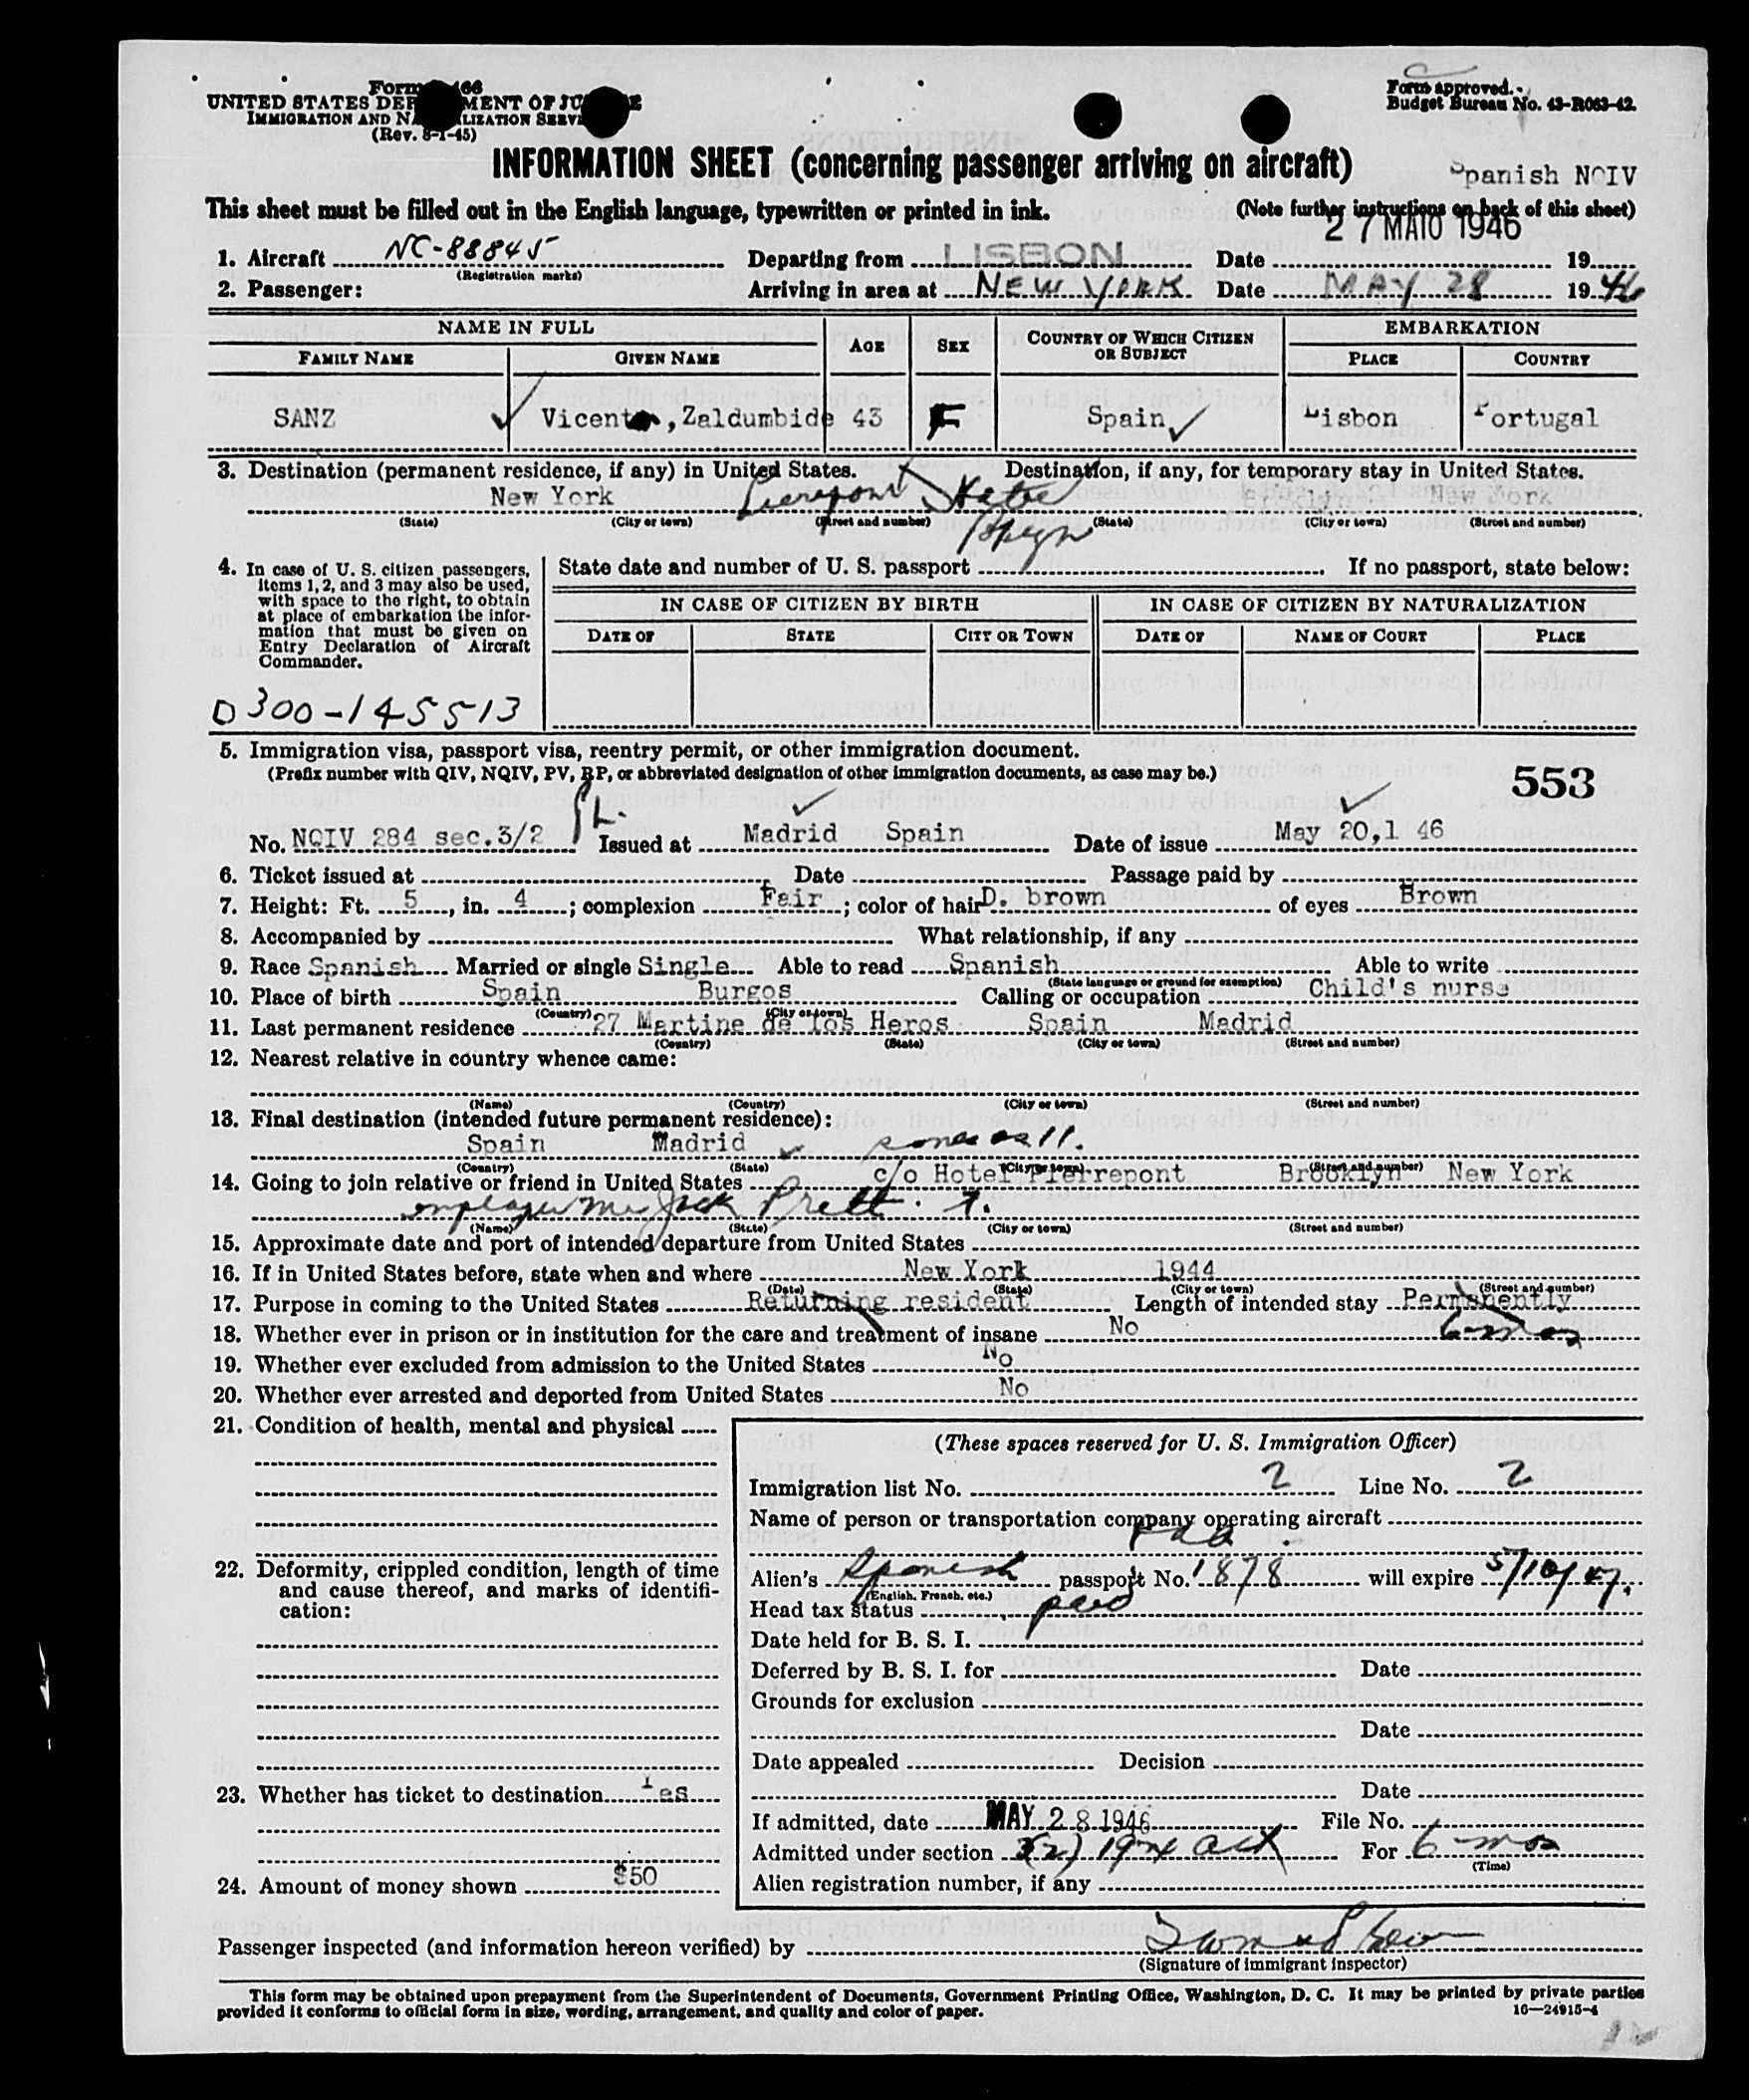 Form 466
UNITED STATES DEPARTMENT OF JUSTICE
IMMIGRATION AND NATURALIZATION SERVICE
(Rev. 8-1-45)
Form approved.
Budget Bureau No. 43-R063-42.
INFORMATION SHEET (concerning passenger arriving on aircraft)
Spanish NQIV
This sheet must be filled out in the English language, typewritten or printed in ink. (Note further instructions on back of this sheet)
27 MAIO 1946
1. Aircraft NC-88845 Departing from LISBON Date 19
(Registration marks)
2. Passenger: Arriving in area at NEW YORK Date MAY 28 1946
NAME IN FULL AGE SEX COUNTRY OF WHICH CITIZEN OR SUBJECT EMBARKATION
FAMILY NAME GIVEN NAME PLACE COUNTRY
SANZ Vicenta, Zaldumbide 43 F Spain Lisbon Portugal
3. Destination (permanent residence, if any) in United States. Destination, if any, for temporary stay in United States.
New York Pierepont Hotel Brooklyn New York
(State) (City or town) (Street and number) (State) (City or town) (Street and number)
Bklyn
4. In case of U. S. citizen passengers, items 1, 2, and 3 may also be used, with space to the right, to obtain at place of embarkation the information that must be given on Entry Declaration of Aircraft Commander.
State date and number of U. S. passport If no passport, state below:
IN CASE OF CITIZEN BY BIRTH IN CASE OF CITIZEN BY NATURALIZATION
DATE OF STATE CITY OR TOWN DATE OF NAME OF COURT PLACE
0300-145513
5. Immigration visa, passport visa, reentry permit, or other immigration document.
(Prefix number with QIV, NQIV, PV, RP, or abbreviated designation of other immigration documents, as case may be.)
553
No. NQIV 284 sec.3/2 Issued at Madrid Spain Date of issue May 20,1 46
6. Ticket issued at Date Passage paid by
7. Height: Ft. 5, in. 4; complexion Fair; color of hair D. brown of eyes Brown
8. Accompanied by What relationship, if any
9. Race Spanish Married or single Single Able to read Spanish Able to write
(State language or ground for exemption)
10. Place of birth Spain Burgos Calling or occupation Child's nurse
(Country) (City or town)
11. Last permanent residence 27 Martine de los Heros Spain Madrid
(Country) (State) (City or town) (Street and number)
12. Nearest relative in country whence came:
(Name) (Country) (City or town) (Street and number)
13. Final destination (intended future permanent residence):
Spain Madrid same as 11.
(Country) (State) (City or town) (Street and number)
14. Going to join relative or friend in United States c/o Hotel Pierrepont Brooklyn New York
employer Mr Jack Prett
(Name) (State) (City or town) (Street and number)
15. Approximate date and port of intended departure from United States
16. If in United States before, state when and where New York 1944
(Date) (State) (City or town) (Street and number)
17. Purpose in coming to the United States Returning resident Length of intended stay Permanently
6 mos
18. Whether ever in prison or in institution for the care and treatment of insane No
19. Whether ever excluded from admission to the United States No
20. Whether ever arrested and deported from United States No
21. Condition of health, mental and physical
22. Deformity, crippled condition, length of time and cause thereof, and marks of identification:
23. Whether has ticket to destination Yes
24. Amount of money shown $50
(These spaces reserved for U. S. Immigration Officer)
Immigration list No. 2 Line No. 2
Name of person or transportation company operating aircraft
Paa
Alien's Spanish passport No. 1878 will expire 5/10/47.
(English, French, etc.)
Head tax status paid
Date held for B. S. I.
Deferred by B. S. I. for Date
Grounds for exclusion
Date
Date appealed Decision
Date
If admitted, date MAY 28 1946 File No.
Admitted under section 3(2) 1924 act For 6 mos
(Time)
Alien registration number, if any
Passenger inspected (and information hereon verified) by
(Signature of immigrant inspector)
This form may be obtained upon prepayment from the Superintendent of Documents, Government Printing Office, Washington, D. C. It may be printed by private parties
provided it conforms to official form in size, wording, arrangement, and quality and color of paper. 16—24915-4